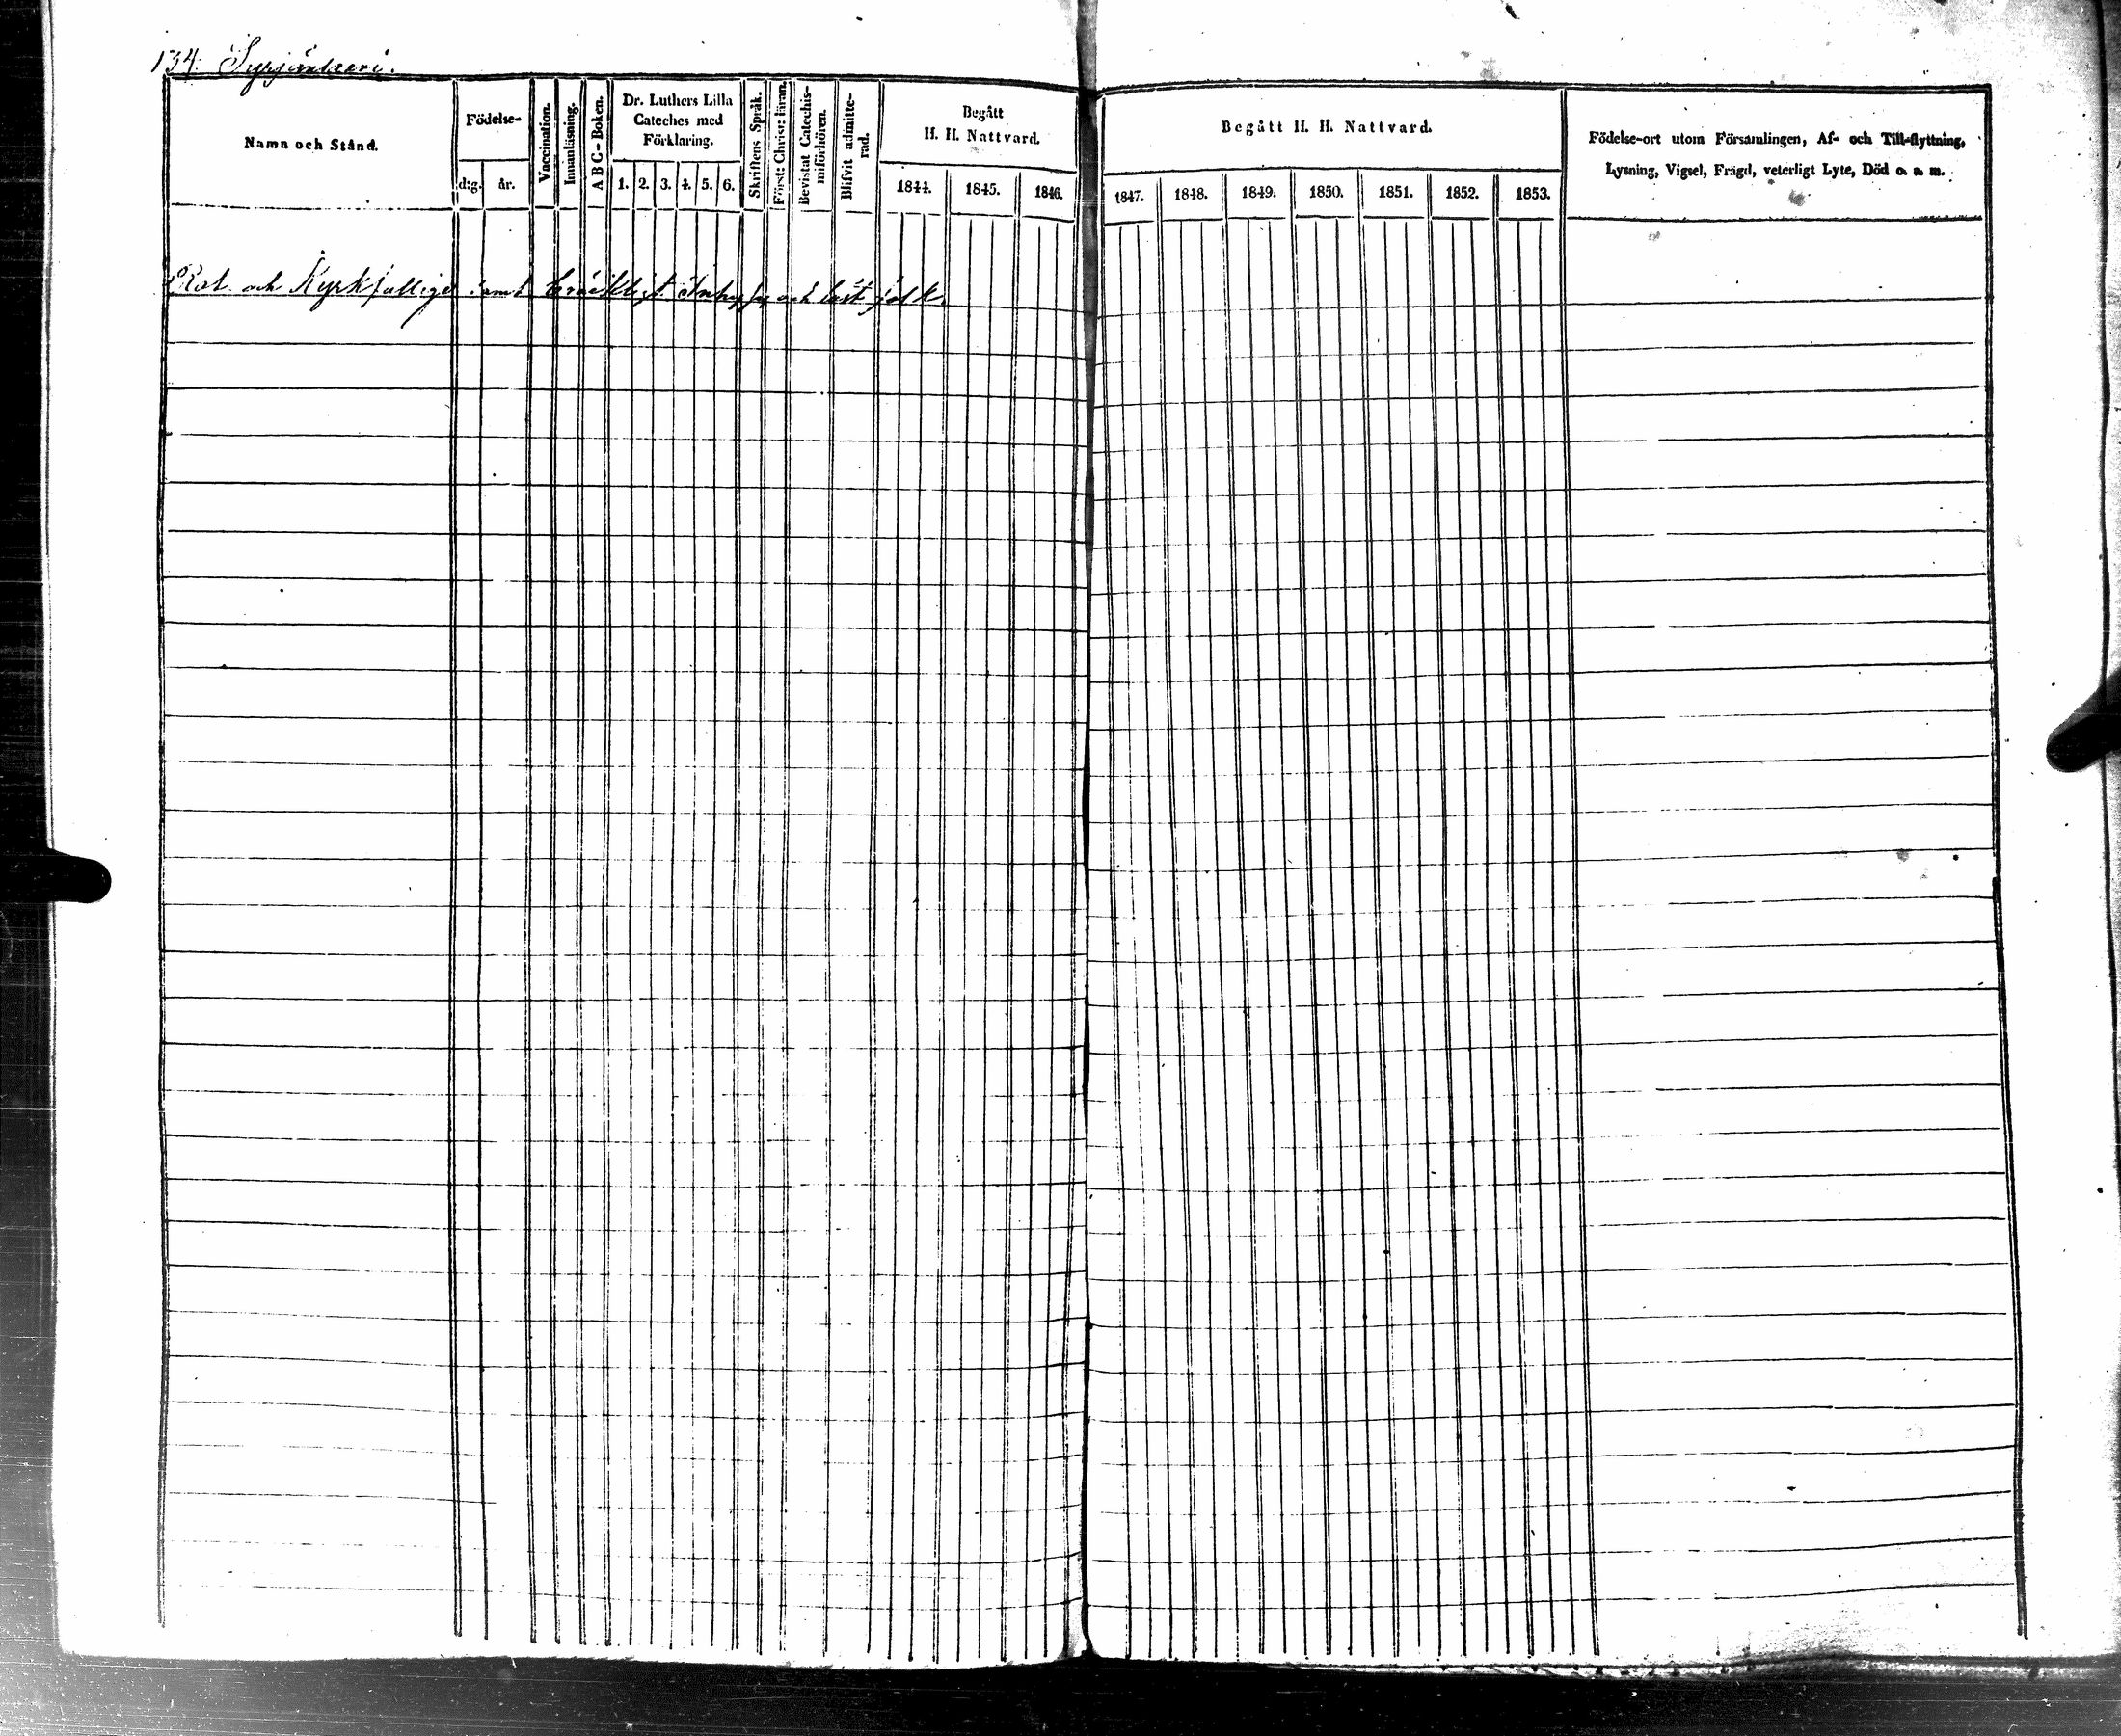 134. Syrjänkeri.
Namn och Stånd.
Födelse-
d:g. år.
Vaccination.
Innanläsning.
A B C - Boken.
Dr. Luthers Lilla
Cateches med
Förklaring.
1. 2. 3. 4. 5. 6.
Skriftens Språk.
Först: Christ: läran.
Bevistat Catechis-
miförhören.
Blifvit admitte-
rad.
Begått
H. H. Nattvard.
1844. 1845. 1846.
Begått H. H. Nattvard.
1847. 1848. 1849. 1850. 1851. 1852. 1853.
Födelse-ort utom Församlingen, Af- och Till-flyttning,
Lysning, Vigsel, Frägd, veterligt Lyte, Död o. s. m.
Rot och Kyrkfattige samt bräckligt och löst folk.